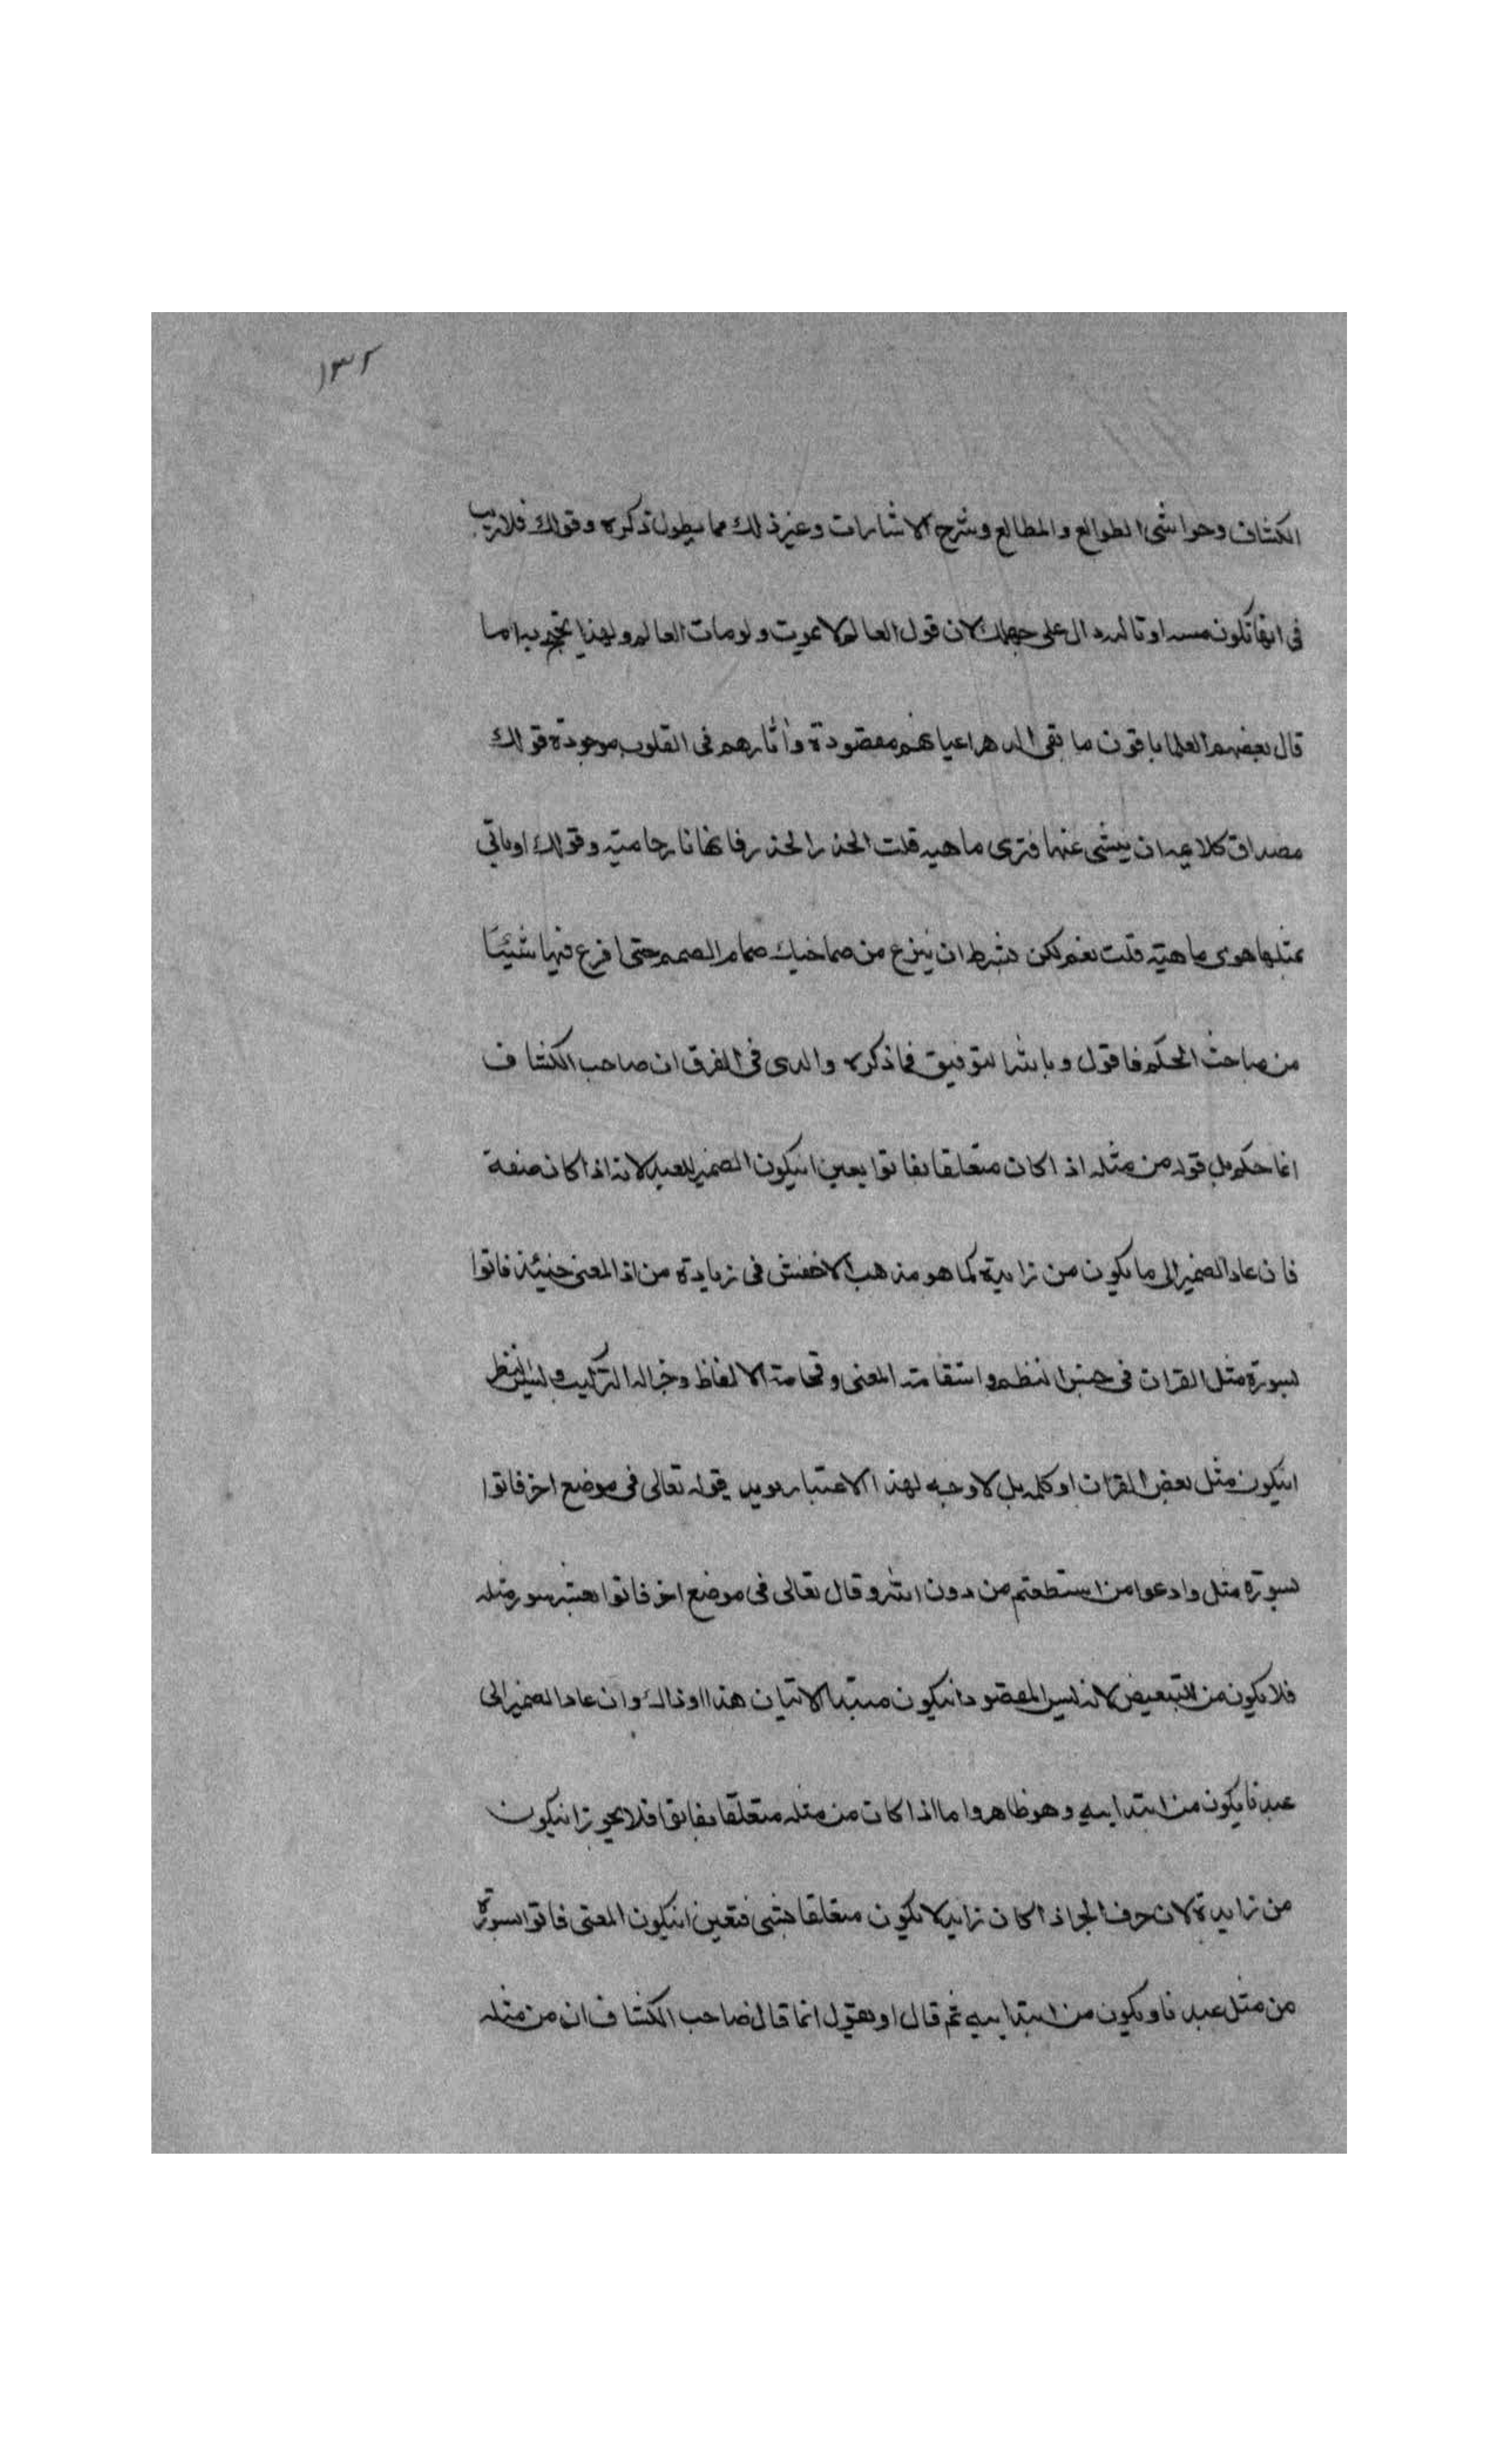 ١٣٢
الكشاف وحواشى الطوالع والمطالع وشرح الاشارات وغيرذلك مما يطول ذكره وقولك فلاريب
فى انها تكون ميتة او ثالثه دال على جهلك لان قول العالم لا يموت ولومات العالم ولهذا يحتج به اما
قال بعضهم العلما باقون ما بقى الدهر اعيانهم مفقودة واثارهم فى القلوب موجودة قولك
مصداق كلا بعد ان ينبشى عنها فترى ماهيه قلت الحذر الحذر فانها نار حاميته وقولك اوياتي
بمثلها هوى ماهيته قلت نعم لكن بشرط ان ينزع من صماخيك صمام الصمم حتى افرغ فيها شيئًا
من مباحث الحكم فاقول وبالله التوفيق فماذكره والدى فى الفرق ان صاحب الكشاف
انما حكم بان قوله من مثله اذا كان متعلقا بفاتوا يعين انيكون الضمير للعبد لانه اذا كان صفة
فان عاد الضمير الى ما يكون من زايدة كما هو مذهب الاخفش فى زيادة من اذ المعنى حينئذ فاتوا
بسورة مثل القران فى حسن النظم واستقامة المعنى وفخامة الالفاظ وجزالة التركيب وليس النظر
انيكون مثل بعض القران اوكله بل لاوجه لهذا الاعتبار يويد قوله تعالى فى موضع اخر فاتوا
بسورة مثله وادعوا من استطعتم من دون الله وقال تعالى فى موضع اخر فاتوا بعشر سور مثله
فلا يكون من للتبعيض لانه ليس المقصود انيكون مبتدا الاتيان هذا اوذاك وان عاد الضمير الى
عبدنا يكون من ابتداييه وهو ظاهر واما اذا كان من مثله متعلقا بفاتوا فلا يجوز انيكون
من زايدة لان حرف الجر اذا كان زايد لا يكون متعلقا بشى فتعين انيكون المعنى فاتوا بسورة
من مثل عبدنا ويكون من ابتداييه ثم قال اونقول انما قال صاحب الكشاف ان من مثله